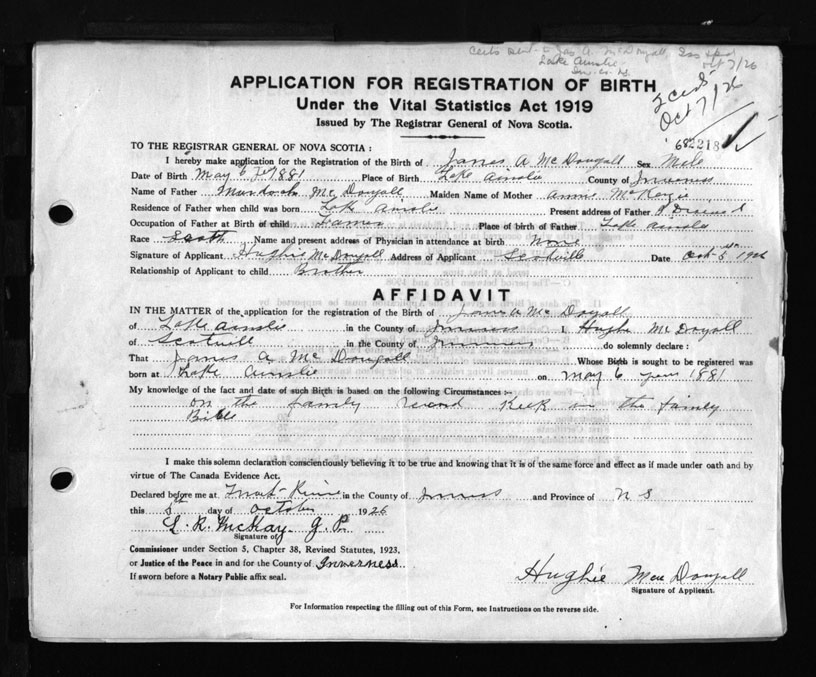 Certs sent to Jas A. McDougall
Lake Ainslie Oct 7/26
APPLICATION FOR REGISTRATION OF BIRTH
Under the Vital Statistics Act 1919
Issued by The Registrar General of Nova Scotia.
2 certs
Oct 7/26
682218
TO THE REGISTRAR GENERAL OF NOVA SCOTIA :
I hereby make application for the Registration of the Birth of James A McDougall Sex Male
Date of Birth May 6 1881 Place of Birth Lake Ainslie County of Inverness
Name of Father Murdoch McDougall Maiden Name of Mother Annie McKenzie
Residence of Father when child was born Lake Ainslie Present address of Father Diseased
Occupation of Father at Birth of child Farmer Place of birth of Father Lake Ainslie
Race Scotch Name and present address of Physician in attendance at birth none
Signature of Applicant Hughie McDougall Address of Applicant Scotville Date Oct 5th 1926
Relationship of Applicant to child Brother
AFFIDAVIT
IN THE MATTER of the application for the registration of the Birth of James A McDougall
of Lake Ainslie in the County of Inverness I, Hugh McDougall
of Scotvill in the County of Inverness do solemnly declare :
That James A McDougall Whose Birth is sought to be registered was
born at Lake Ainslie on May 6 year 1881
My knowledge of the fact and date of such Birth is based on the following Circumstances :-
on the family record Keep in the family
Bible
I make this solemn declaration conscientiously believing it to be true and knowing that it is of the same force and effect as if made under oath and by
virtue of The Canada Evidence Act.
Declared before me at in the County of Inverness and Province of N S
this 5th day of October 1926
L. R. McKay J. P.
Signature of
Commissioner under Section 5, Chapter 38, Revised Statutes, 1923,
or Justice of the Peace in and for the County of Inverness
If sworn before a Notary Public affix seal.
Hughie MacDougall
Signature of Applicant.
For Information respecting the filling out of this Form, see Instructions on the reverse side.